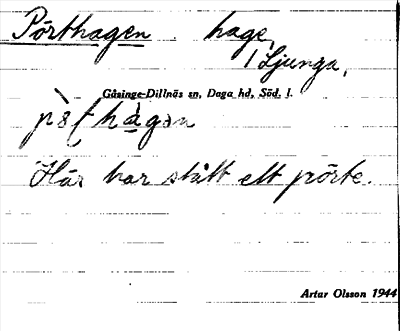 Pörthagen. hage,
i Ljunga,
Gåsinge-Dillnäs sn, Daga hd, Söd. l.
Här har stått ett pörte.
Artur Olsson 1944